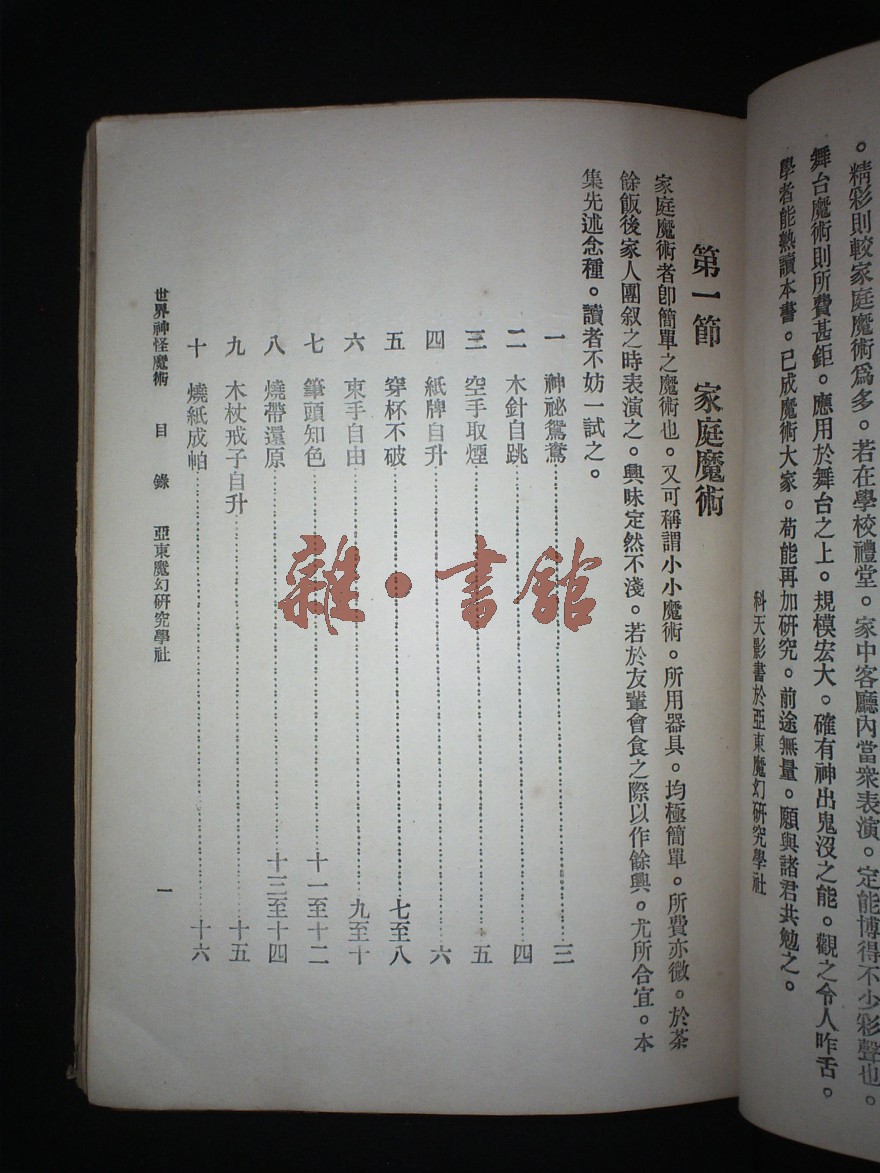 。精彩則較家庭魔術爲多。若在學校禮堂。家中客廳內當衆表演。定能博得不少彩聲也。
舞台魔術則所費甚鉅。應用於舞台之上。規模宏大。確有神出鬼沒之能。觀之令人咋舌。
學者能熟讀本書。已成魔術大家。苟能再加研究。前途無量。願與諸君共勉之。
科天影書於亞東魔幻研究學社
第一節　家庭魔術
家庭魔術者卽簡單之魔術也。又可稱謂小小魔術。所用器具。均極簡單。所費亦微。於茶
餘飯後家人團叙之時表演之。興味定然不淺。若於友輩會食之際以作餘興。尤所合宜。本
集先述念種。讀者不妨一試之。
一　神祕鴛鴦……三
二　木針自跳……四
三　空手取煙……五
四　紙牌自升……六
五　穿杯不破……七至八
六　束手自由……九至十
七　筆頭知色……十一至十二
八　燒帶還原……十三至十四
九　木杖戒子自升……十五
十　燒紙成帕……十六
世界神怪魔術　目　錄　亞東魔幻研究學社　一
雜·書館